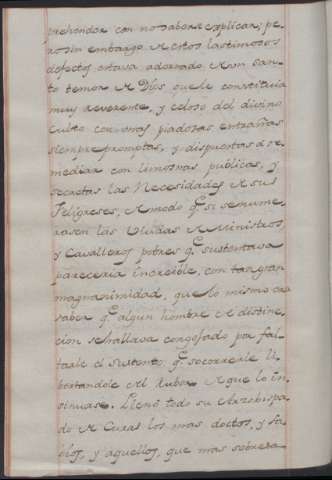 prehender con no saberse explicar; pe-
ro sin embargo de estos lastimosos
defectos estava adornado de un san-
to temor de Dios que le constituía
muy reverente, y celoso del divino
Culto con unas piadosas entrañas
siempre promptas, y dispuestas á re-
mediar con limosnas publicas, y
secretas las Necesidades de sus
Feligreses, de modo q.e si se nume-
rasen las Viudas de Ministros,
y Cavalleros pobres q.e sustentava
pareceria increible, con tan gran
magnanimidad, que lo mismo era
saber q.e algun hombre de distin-
cion se hallava congojado por fal-
tarle el sustento, q.e socorrerle li-
bertandole del rubor de que lo in-
sinuase. Llenó todo su Arzobispa-
do de Curas los mas doctos, y sa-
bios, y aquellos, que mas sobresa-